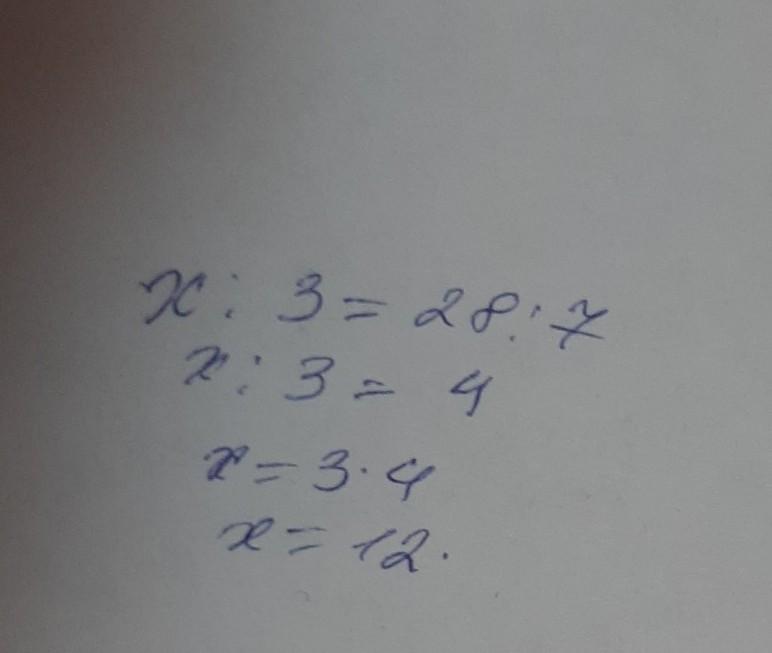 x : 3 = 28 : 7
x : 3 = 4
x = 3 · 4
x = 12.